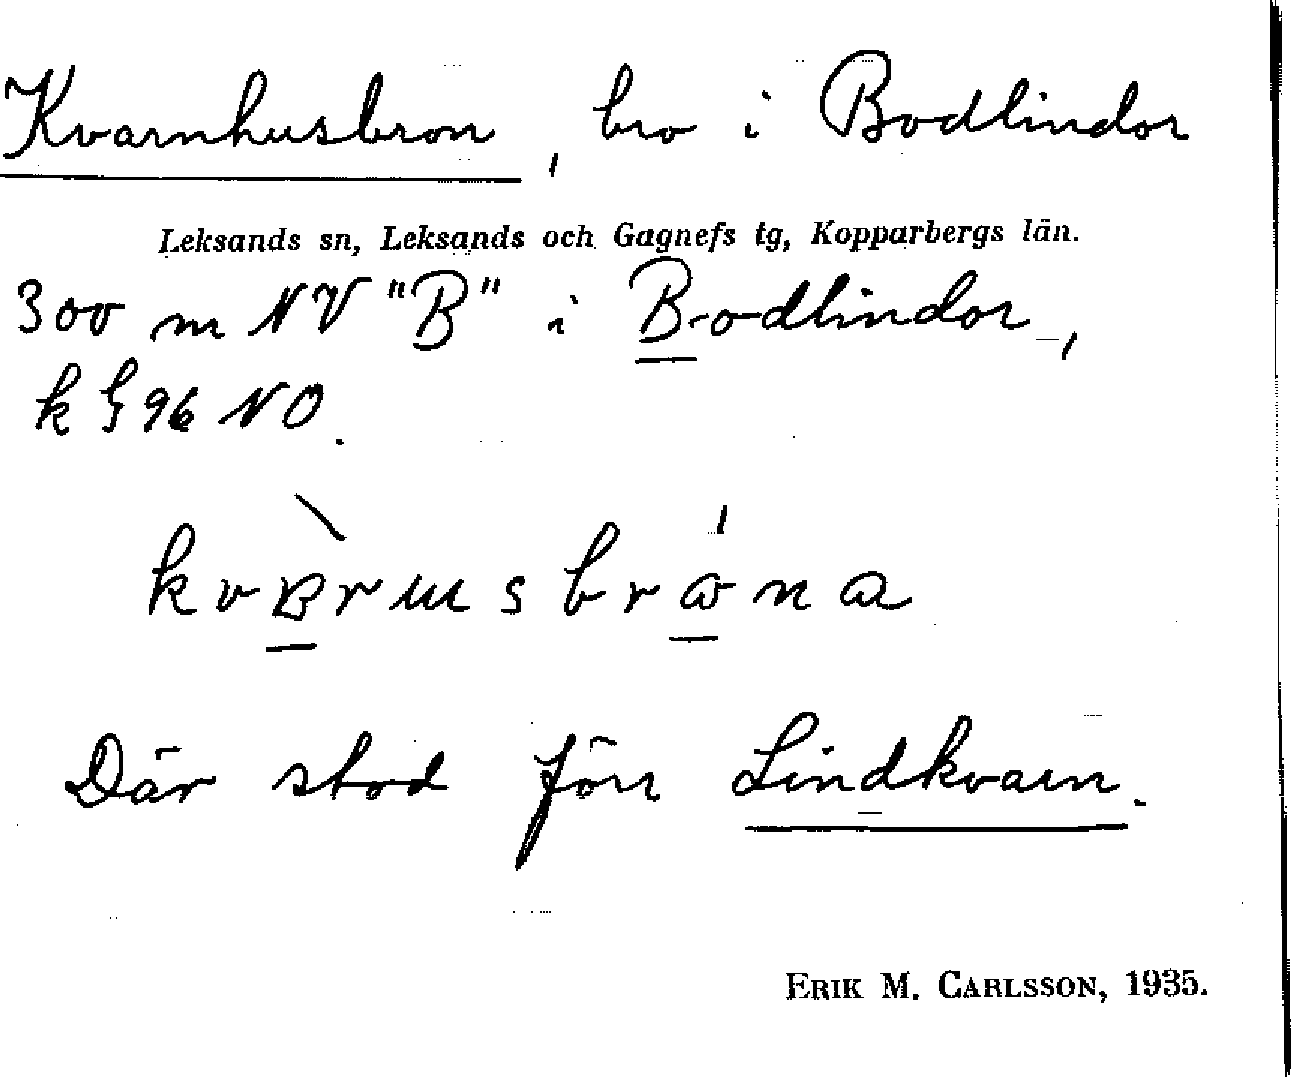 Kvarnhusbron, bro i Bodlindor
Leksands sn, Leksands och Gagnefs tg, Kopparbergs län.
300 m NV "B" i Bodlindor,
k § 96 NO.
Där stod förr Lindkvarn.
ERIK M. CARLSSON, 1935.